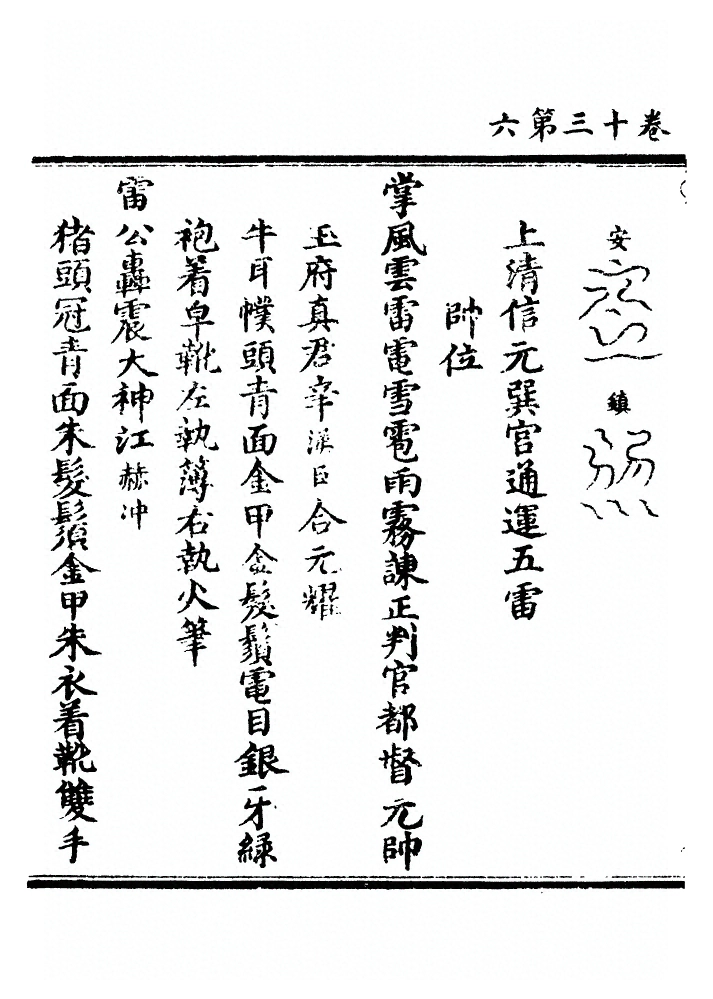 六第三十卷
安 鎮
上清信元巽宮通運五雷
帥位
掌風雲雷電雪雹雨霧諫正判官都督元帥
玉府真君辛漢臣合元耀
牛耳幞頭青面金甲金髮鬚電目銀牙緑
袍着皁靴左執簿右執火筆
雷公轟震大神江赫冲
猪頭冠青面朱髮鬚金甲朱衣着靴雙手